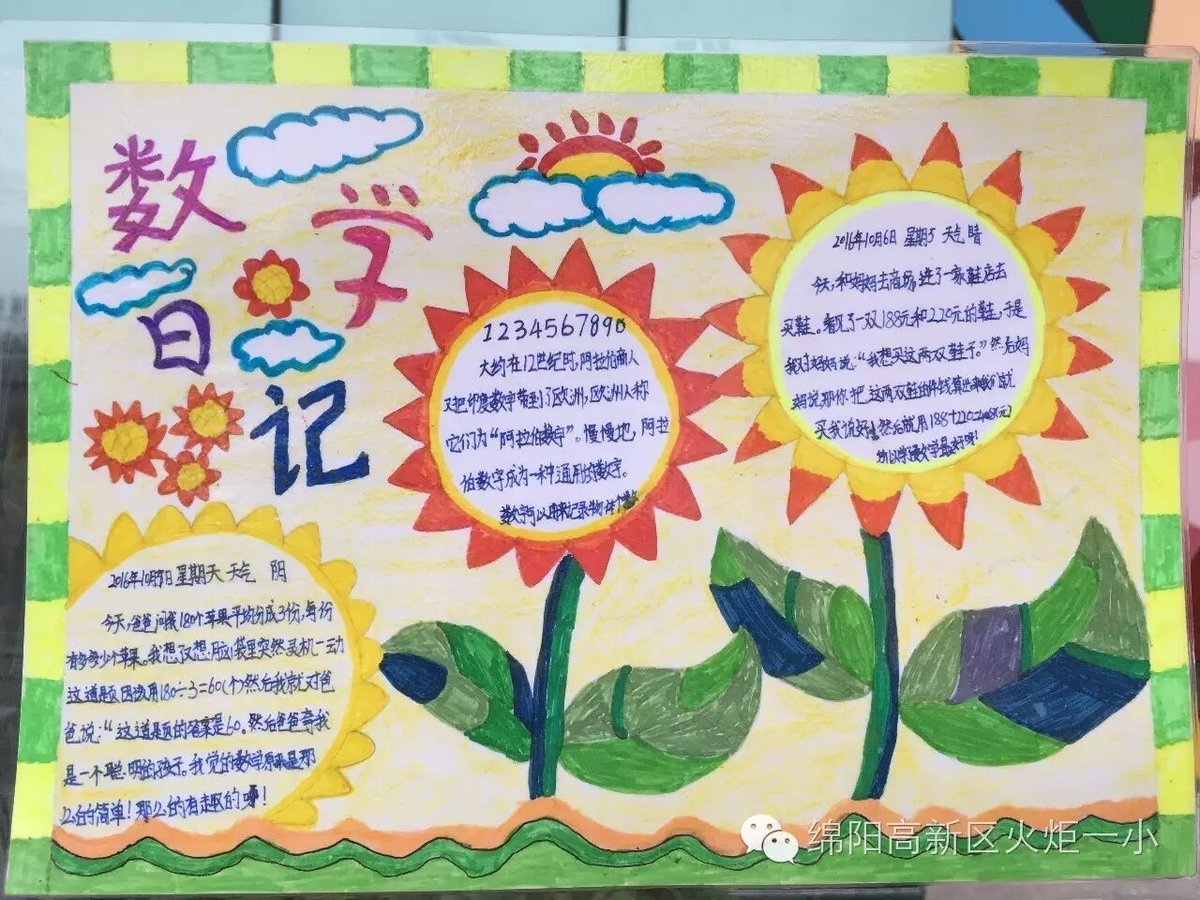 数学
日记
1234567890
大约在12世纪时,阿拉伯商人
又把印度数字带到了欧洲,欧洲人称
它们为“阿拉伯数字”。慢慢地,阿拉
伯数字成为一种通用的数字。
数字可以用来记录物体个数
2016年10月6日 星期5 天气 晴
今天,和妈妈去商场,进了一家鞋店去
买鞋。看见了一双188元和220元的鞋,于是
我对妈妈说:“我想买这两双鞋子。”然后妈
妈说那你把这两双鞋的价钱算出来我们就
买我说好!然后就用188+220=408(元)
所以学
2016年10月 日 星期天 天气 阴
今天,爸爸问我180个苹果平均分成3份,每份
有多少个苹果。我想了想,脑袋里突然灵机一动
这道题因该用180÷3=60(个)然后我就对爸
爸说:“这道题的答案是60。然后爸爸夸我
是一个聪明的孩子。我觉的数学原来是那
么的简单!那么的有趣的呀!
绵阳高新区火炬一小